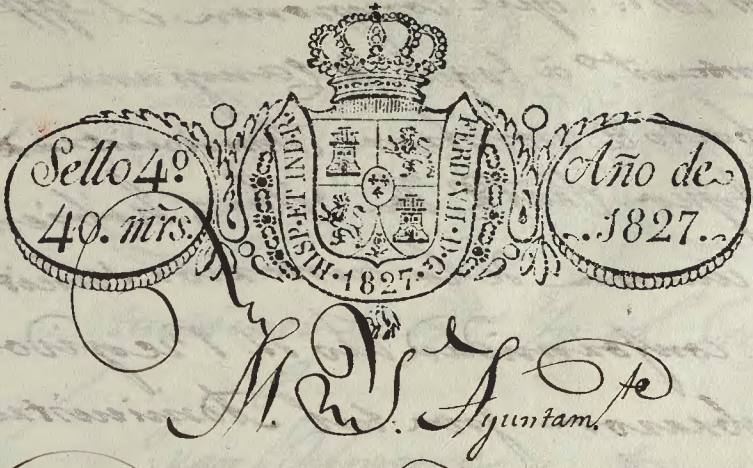 Sello 4º
40. mrs.
HISP. ET IND. R. FERD. VII. D. G.
·1827·
Año de
1827.
M. Y. Ayuntam.te